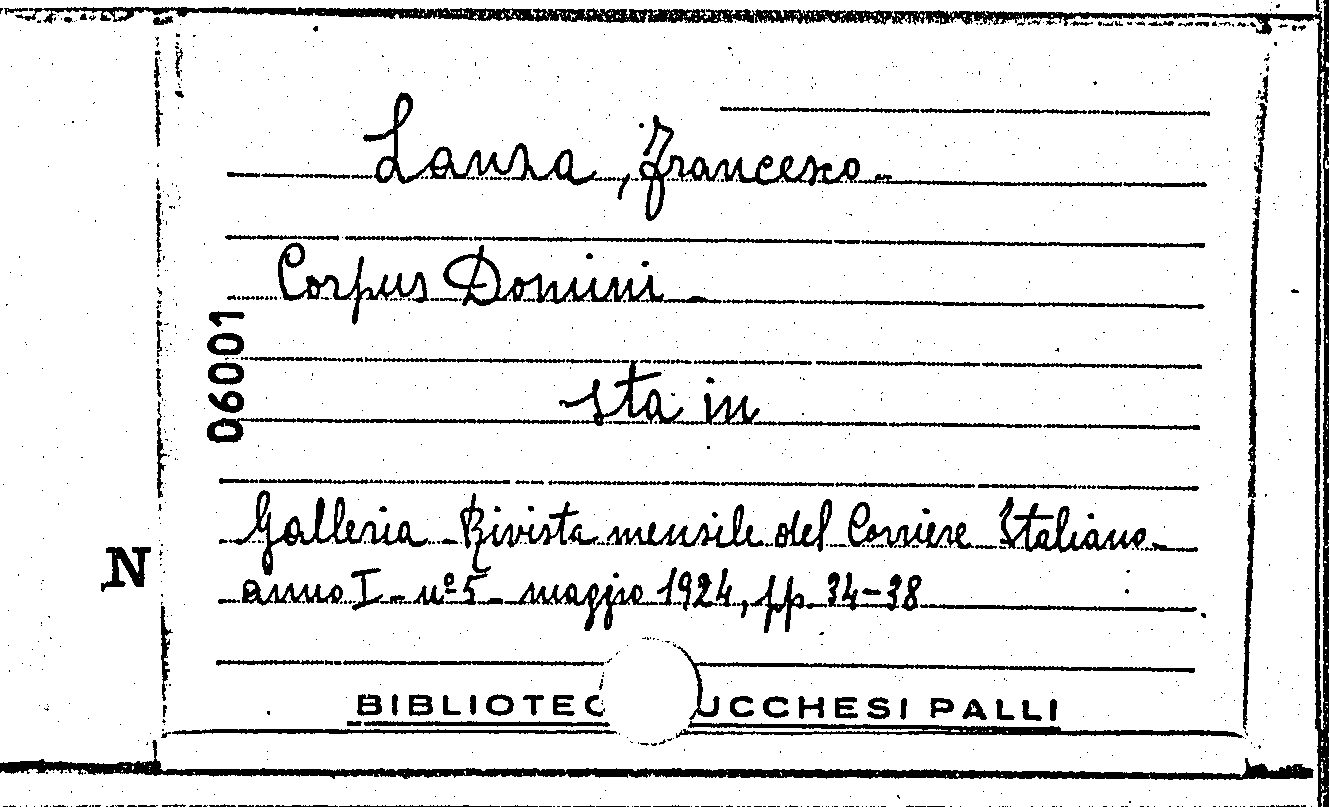 Lanza, Francesco -
Corpus Domini -
06001
sta in
Galleria - Rivista mensile del Corriere Italiano -
N
anno I - nº 5 - maggio 1924, pp. 34-38
BIBLIOTEC UCCHESI PALLI